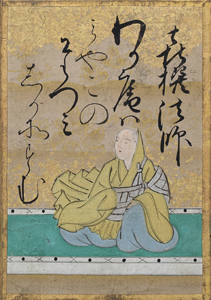 喜撰法師
わか庵ハ
みやこの
たつミ
しかそすむ